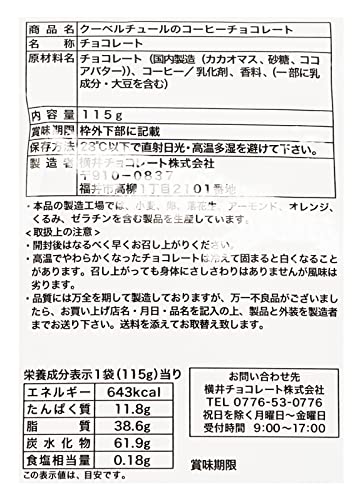 商品名 クーベルチュールのコーヒーチョコレート
名称 チョコレート
原材料名 チョコレート（国内製造（カカオマス、砂糖、ココ
アバター））、コーヒー／乳化剤、香料、（一部に乳
成分・大豆を含む）
内容量 115g
賞味期限 枠外下部に記載
保存方法 28℃以下で直射日光・高温多湿を避けて下さい。
製造者 横井チョコレート株式会社
〒910-0837
福井市高柳1丁目2101番地
・本品の製造工場では、小麦、卵、落花生、アーモンド、オレンジ、
くるみ、ゼラチンを含む製品を生産しています。
＜取扱上の注意＞
・開封後はなるべく早くお召し上がりください。
・高温でやわらかくなったチョコレートは冷えて固まると白くなること
があります。召し上がっても身体にさしさわりはありませんが風味は
劣ります。
・品質には万全を期して製造しておりますが、万一不良品がございまし
たら、お買い上げ店名・月日・品名を記入の上、製品と外装を製造者
までお送り下さい。送料を添えてお取替え致します。
栄養成分表示1袋（115g）当り
エネルギー 643kcal
たんぱく質 11.8g
脂質 38.6g
炭水化物 61.9g
食塩相当量 0.18g
この表示値は、目安です。
お問い合わせ先
横井チョコレート株式会社
TEL 0776-53-0776
祝日を除く月曜日〜金曜日
受付時間 9:00〜17:00
賞味期限